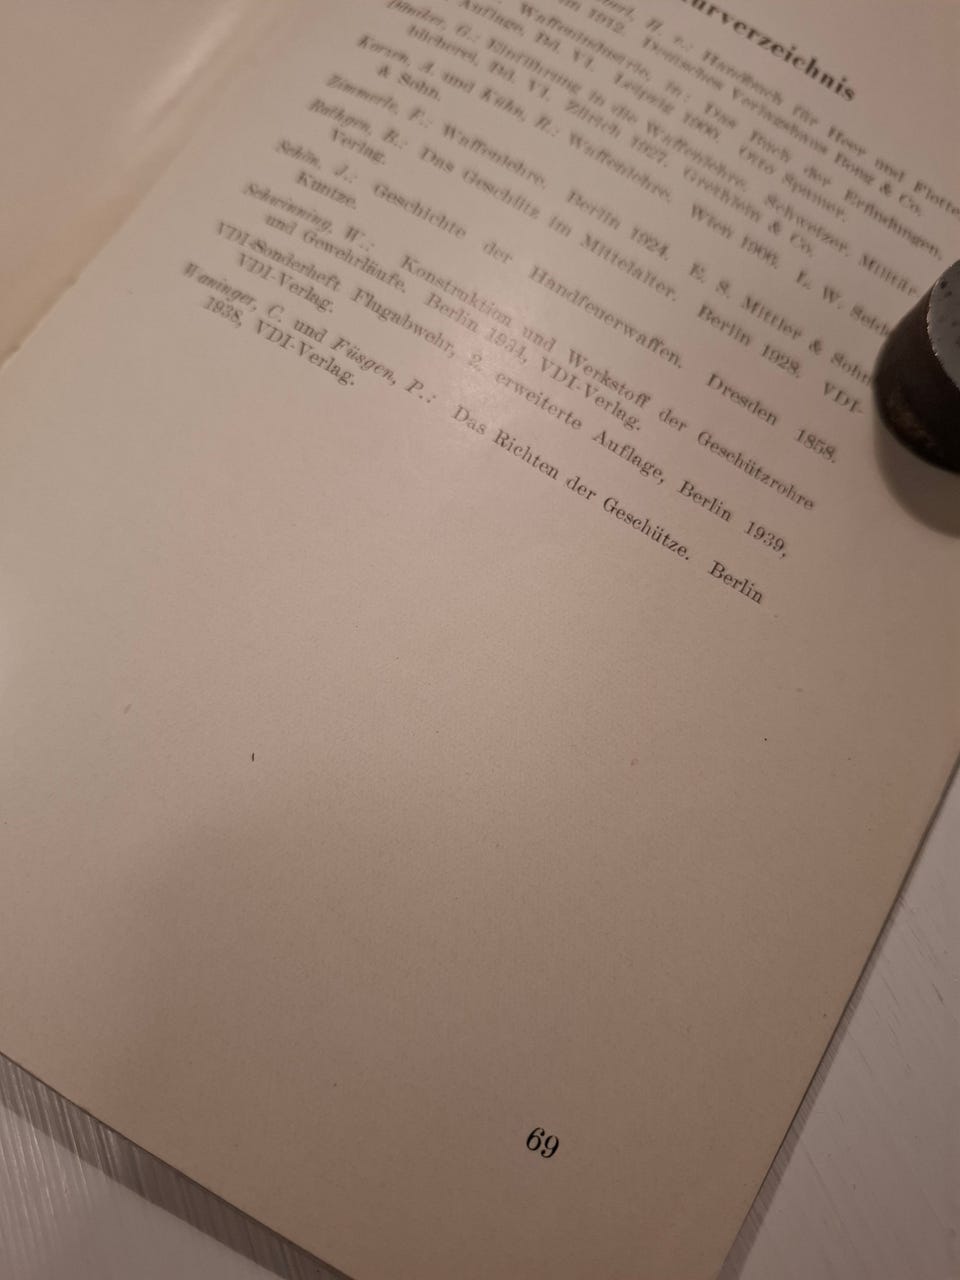 urverzeichnis
H. v.: Handbuch für Heer und Flotte
1912. Deutsches Verlagshaus Bong & Co.
Waffenindustrie, in: Das Buch der Erfindungen,
Auflage, Bd. VI. Leipzig 1900. Otto Spamer.
G.: Einführung in die Waffenlehre. Schweizer. Militär-
bücherei, Bd. VI. Zürich 1927. Grethlein & Co.
Korzen, A. und Kühn, R.: Waffenlehre. Wien 1906. L. W. Seidel
& Sohn.
Zimmerle, E.: Waffenlehre. Berlin 1924. E. S. Mittler & Sohn
Rathgen, B.: Das Geschütz im Mittelalter. Berlin 1928. VDI-
Verlag.
Schön, J.: Geschichte der Handfeuerwaffen. Dresden 1858.
Kuntze.
Schwinning, W.: Konstruktion und Werkstoff der Geschützrohre
und Gewehrläufe. Berlin 1934, VDI-Verlag.
VDI-Sonderheft Flugabwehr, 2. erweiterte Auflage, Berlin 1939,
VDI-Verlag.
Waninger, C. und Füsgen, P.: Das Richten der Geschütze. Berlin
1938, VDI-Verlag.
69